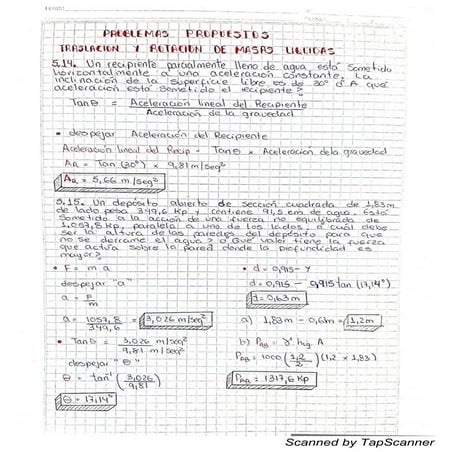 PROBLEMAS PROPUESTOS
TRASLACION Y ROTACION DE MASAS LIQUIDAS
5.14. Un recipiente parcialmente lleno de agua está sometido
horizontalmente a una aceleración constante. La
inclinación de la superficie libre es de 30° ¿A que
aceleración está sometido el recipiente?
Tan θ = Aceleración lineal del Recipiente
Aceleración de la gravedad
• despejar Aceleración del Recipiente
Aceleración lineal del Recip = Tan θ x Aceleración de la gravedad
AR = Tan (30°) x 9,81 m/seg²
AR = 5,66 m/seg²
5.15. Un depósito abierto de sección cuadrada de 1,83m
de lado pesa 349,6 Kp y contiene 91,5 cm de agua. Está
sometido a la acción de una fuerza no equilibrada de
1,057,8 Kp, paralela a uno de los lados. ¿cuál debe
ser la altura de las paredes del depósito para que
no se derrame el agua? ¿Que valor tiene la fuerza
que actúa sobre la pared donde la profundidad es
mayor?
• F = m a
despejar "a"
a = F/m
a = 1057,8/349,6 = 3,026 m/seg²
• Tan θ = 3,026 m/seg²/9,81 m/seg²
despejar "θ"
θ = tan⁻¹ (3,026/9,81)
θ = 17,14°
• d = 0,915 - Y
d = 0,915 - 0,915 tan (17,14°)
d = 0,63m
a) 1,83m - 0,63m = 1,2m
b) PAB = γ hcg A
PAB = 1000 (1,2/2) (1,2 x 1,83)
PAB = 1317,6 Kp
Scanned by TapScanner